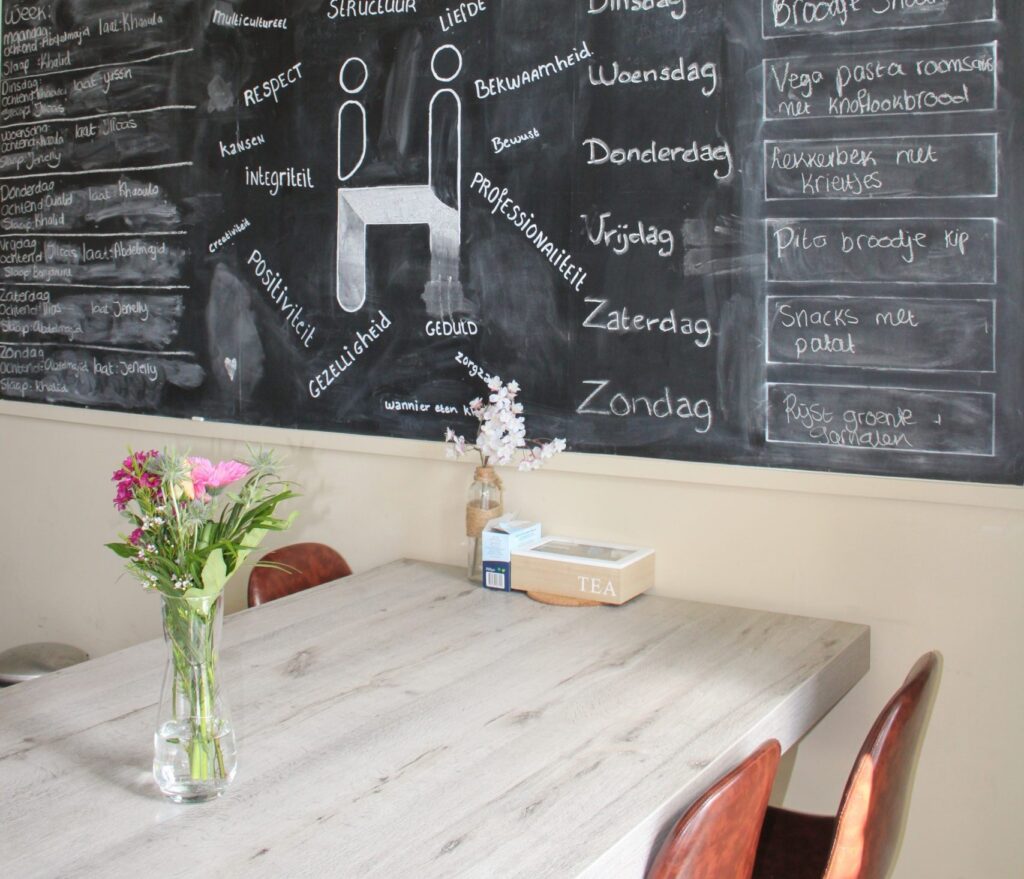 Week:
maandag:
ochtend: Abdelmajid laat: Khaoula
Slaap: Khalid
Dinsdag:
laat: yassin
Slaap: Iliass
Woensdag
laat: Iliass
Slaap: Jenelly
Donderdag
ochtend: Oualid laat: Khaoula
Slaap: Khalid
Vrijdag
ochtend Iliass laat: Abdelmajid
Slaap:
Zaterdag
laat: Jenelly
Slaap: Abdelmajid
Zondag
ochtend: Abdelmajid laat: Jenelly
Slaap: Khalid
multicultureel
STRUCTUUR
LIEFDE
RESPECT
BEKWAAMHEID.
kansen
Bewust
INTEGRITEIT
PROFESSIONALITEIT
creativiteit
POSITIVITEIT
GEZELLIGHEID
GEDULD
wannier eten
Dinsdag
Broodje
Woensdag
Vega pasta roomsaus
met knoflookbrood
Donderdag
Lekkerbek met
Krieltjes
Vrijdag
Pita broodje kip
Zaterdag
Snacks met
patat
Zondag
Rijst groente
garnalen
TEA